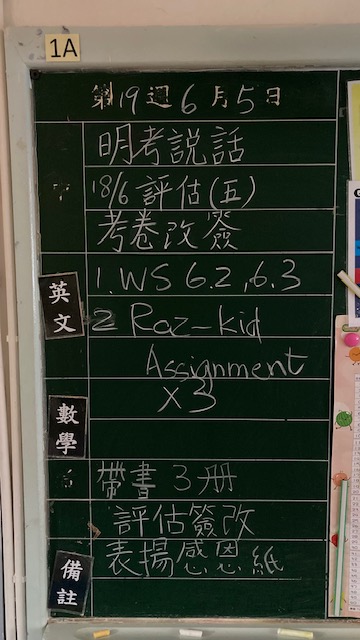 1A
第19週6月5日
明考説話
18/6評估(五)
考卷改簽
英文
1. WS 6.2, 6.3
2 Raz-kid
Assignment
x3
數學
帶書3册
評估簽改
備註
表揚感恩紙